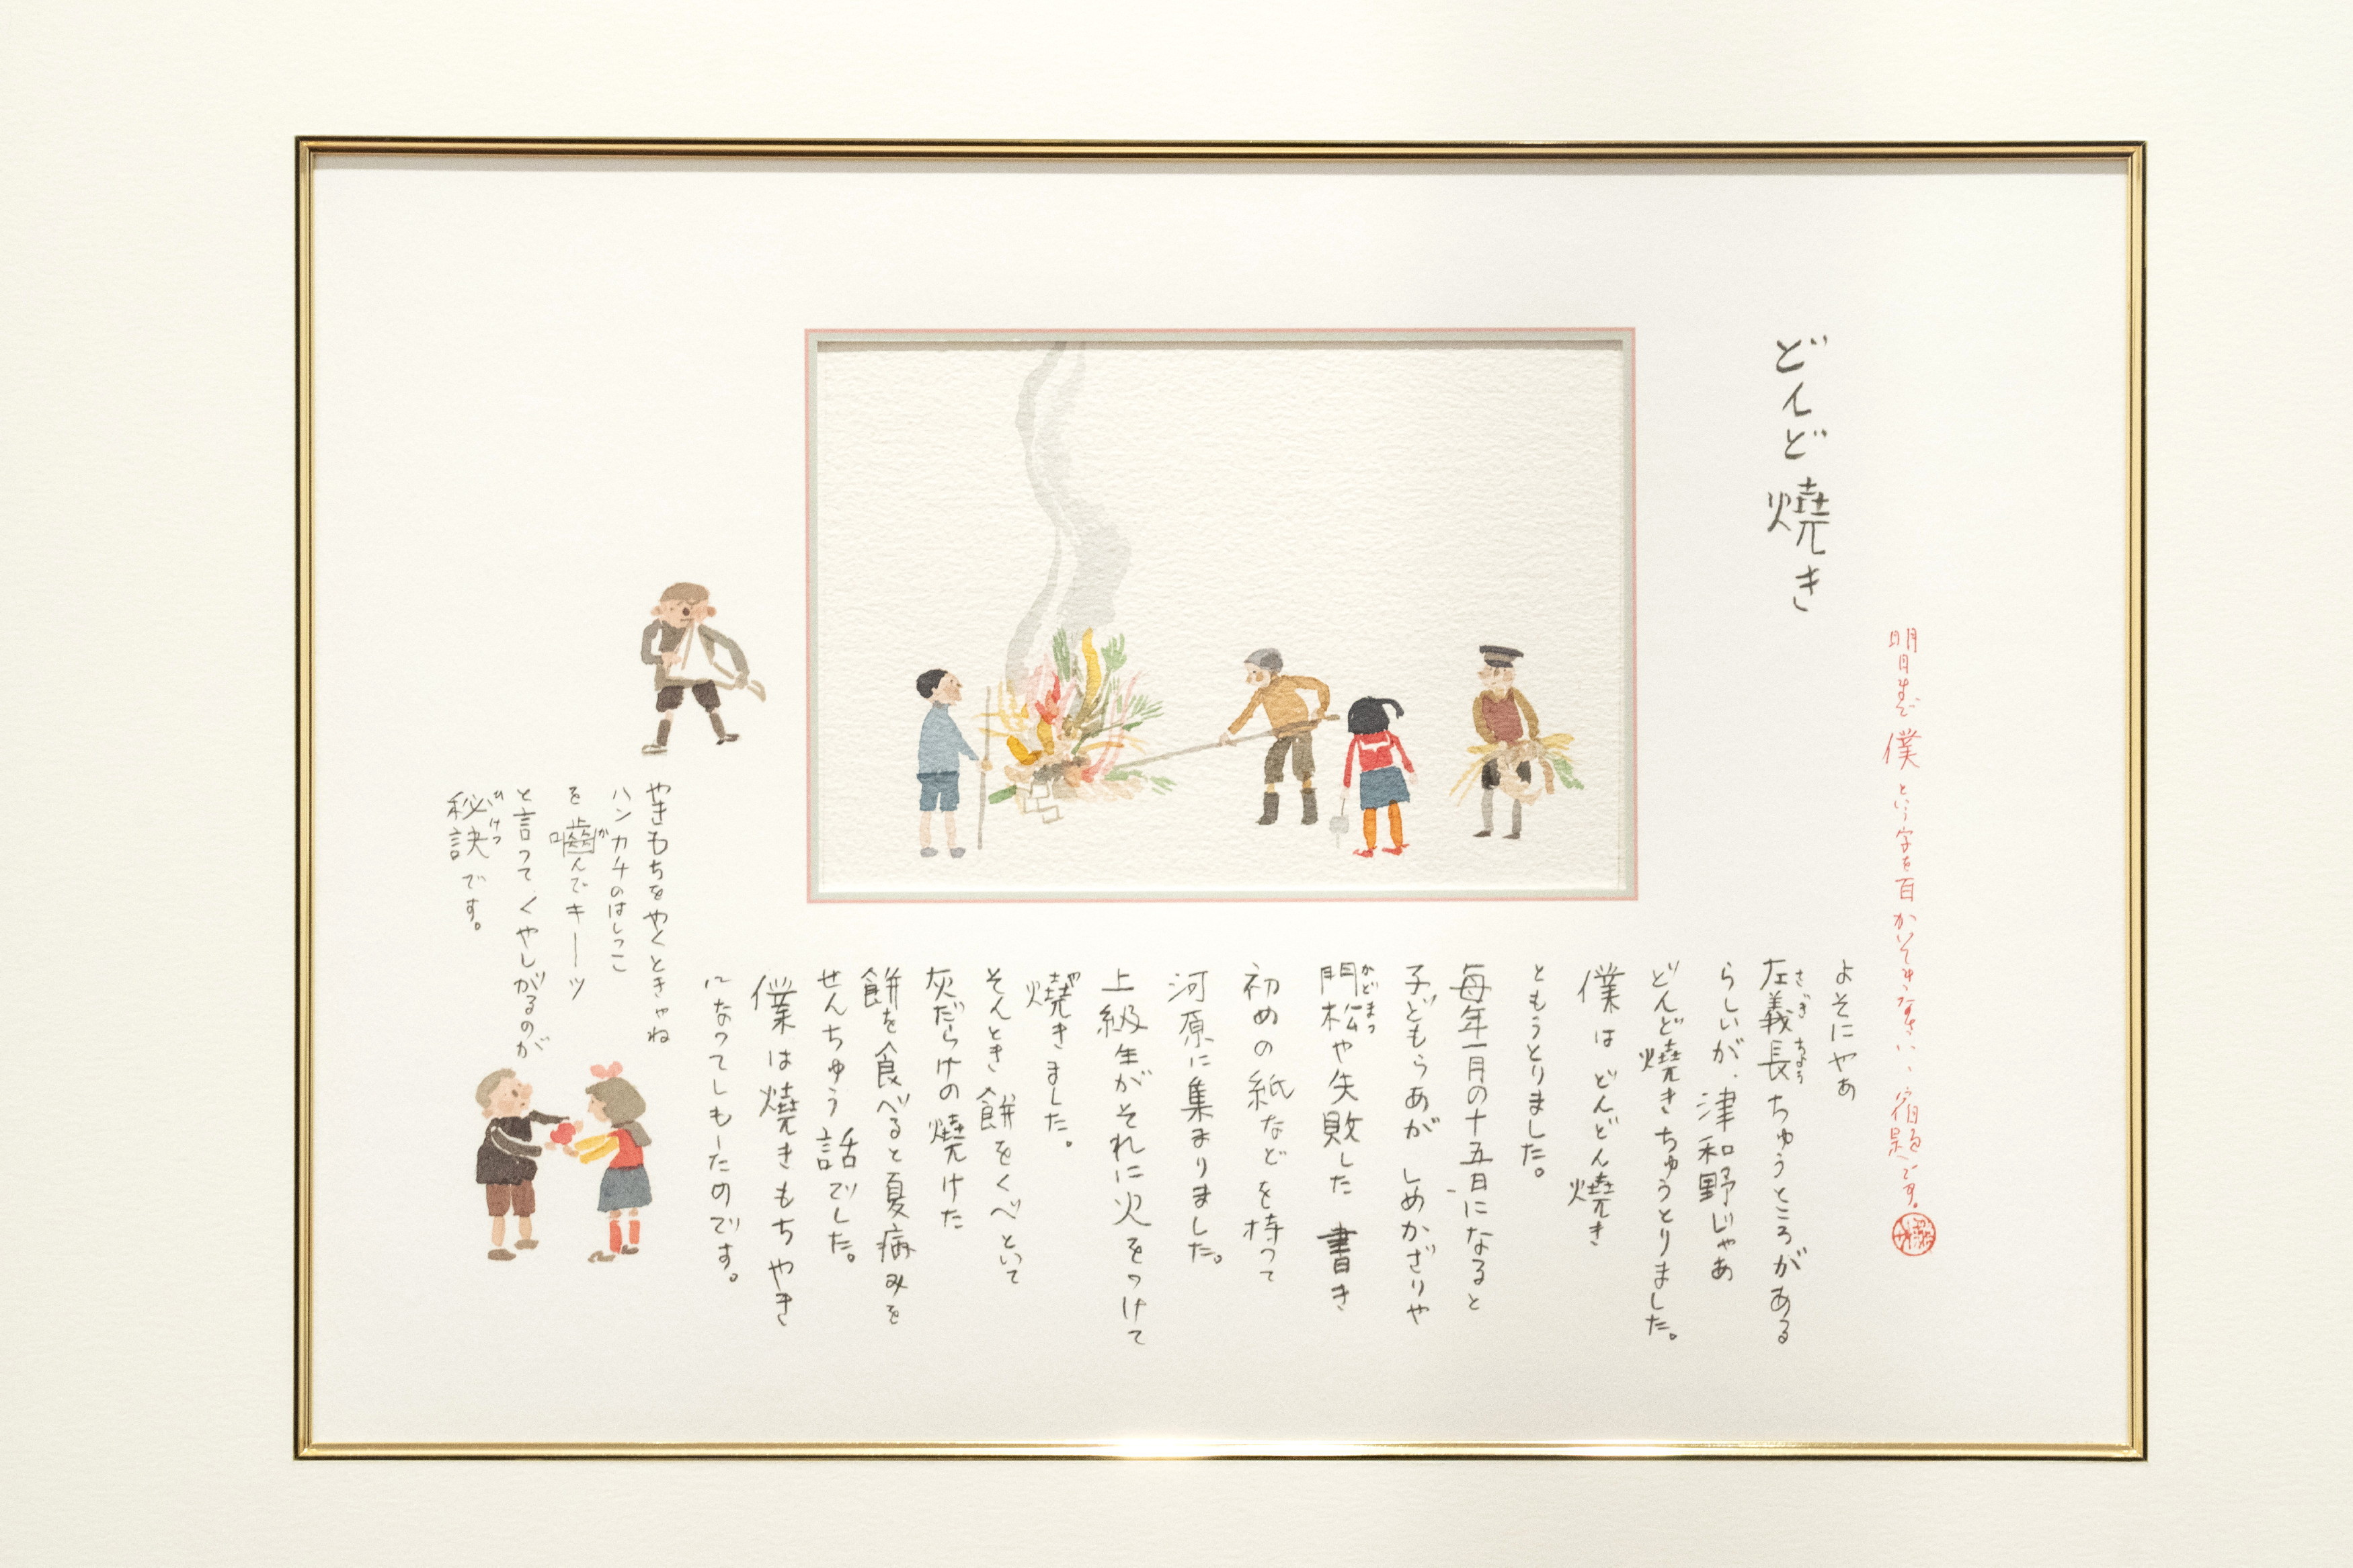 どんど燒き
明日まで僕という字を百かいてきなさい、宿題です。
よそにやあ
左義長ちゅうところがある
さぎちょう
らしいが、津和野じゃあ
どんど燒きちゅうとりました。
僕はどんどん燒き
ともうとりました。
毎年一月の十五日になると
子どもらあが しめかざりや
門松や失敗した 書き
かどまつ
初めの紙などを持って
河原に集まりました。
上級生がそれに火をつけて
燒きました。
や
そんとき餅をくべといて
灰だらけの燒けた
餅を食べると夏病みを
せんちゅう話でした。
僕は燒きもちやき
になってしもーたのです。
やきもちをやくときゃね
ハンカチのはしっこ
を嚙んでキーッ
か
と言って、くやしがるのが
秘訣です。
ひけつ